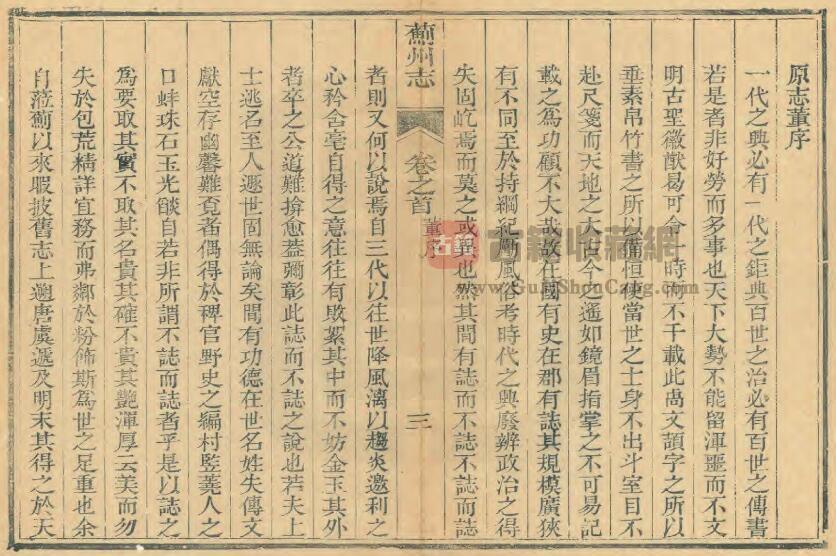 原志董序
一代之興必有一代之鉅典百世之治必有百世之傳書
若是者非好勞而多事也天下大勢不能留渾噩而不文
明古聖徽猷曷可含一時而不千載此卨文頡字之所以
垂素帛竹書之所以備恒使當世之士身不出斗室目不
赴尺箋而天地之大古今之遙如鏡眉指掌之不可易記
載之為功顧不大哉故在國有史在郡有誌其規模廣狹
有不同至於持綱紀勵風俗考時代之興廢辨政治之得
失固屹焉而莫之或異也然其間有誌而不誌不誌而誌
薊州志
卷之首
董序
三
者則又何以說焉自三代以往世降風漓以趨炎邀利之
心矜含毫自得之意往往有敗絮其中而不妨金玉其外
者卒之公道難揜愈蓋彌彰此誌而不誌之說也若夫上
士逃名至人遯世固無論矣間有功德在世名姓失傳文
獻空存幽馨難覓者偶得於稗官野史之編村監蕘人之
口蚌珠石玉光燄自若非所謂不誌而誌者乎是以誌之
為要取其實不取其名貴其確不貴其艷渾厚云美而勿
失於包荒精詳宜務而弗鄰於粉飾斯為世之足重也余
自蒞薊以來暇披舊志上遡唐虞遞及明末其得之於天
古籍
古籍收藏網
www.GuJiShouCang.com